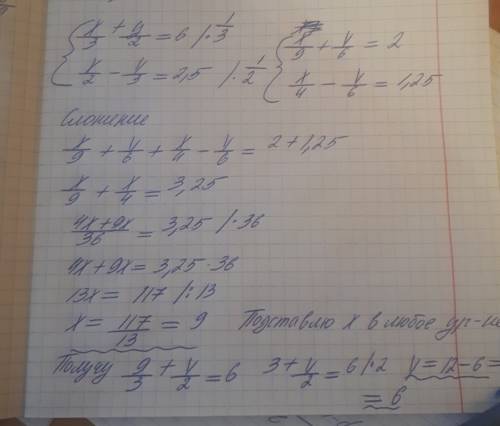 { x/3 + y/2 = 6 /·1/3 { x/9 + y/6 = 2
x/2 - y/3 = 2,5 /·1/2 x/4 - y/6 = 1,25
Сложение
x/9 + y/6 + x/4 - y/6 = 2+1,25
x/9 + x/4 = 3,25
4x+9x/36 = 3,25 /·36
4x+9x = 3,25·36
13x = 117 /:13
x = 117/13 = 9 Подставлю x в любое ур-не
Получу 9/3 + y/2 = 6 3 + y/2 = 6 /·2 y = 12-6 =
= 6